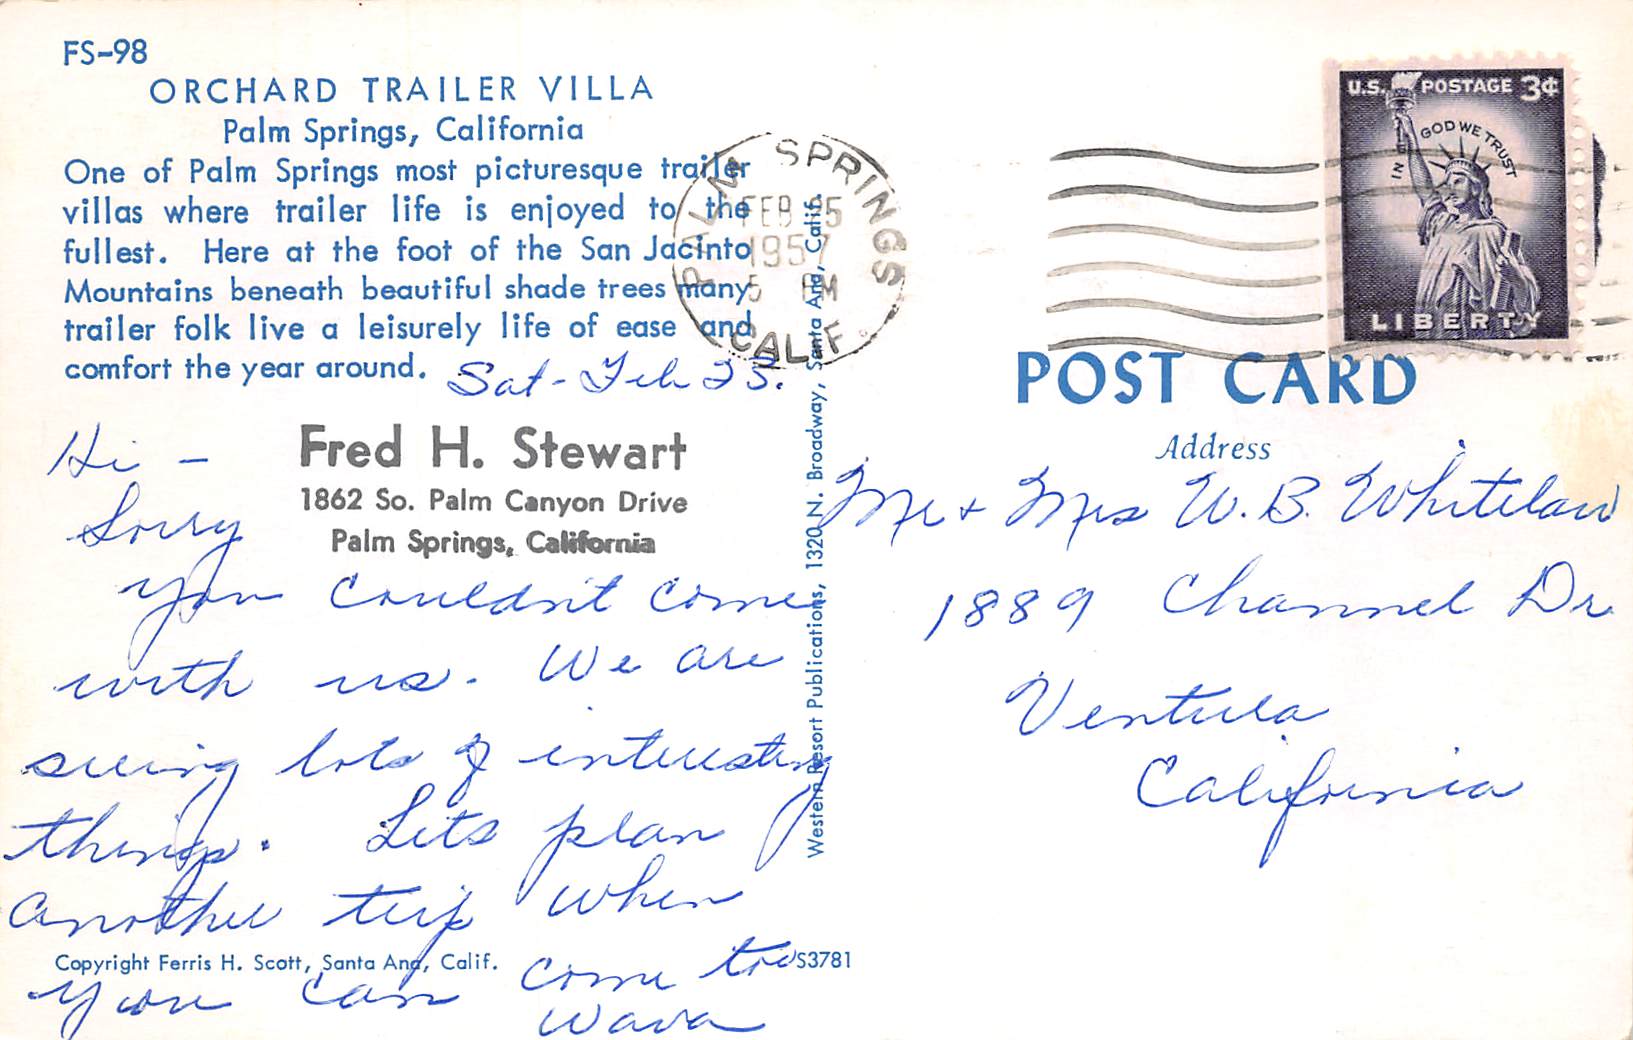 FS-98
ORCHARD TRAILER VILLA
Palm Springs, California
One of Palm Springs most picturesque trailer
villas where trailer life is enjoyed to the
fullest. Here at the foot of the San Jacinto
Mountains beneath beautiful shade trees many
trailer folk live a leisurely life of ease and
comfort the year around.
Sat - Feb 23.
Fred H. Stewart
1862 So. Palm Canyon Drive
Palm Springs, California
Hi -
Sorry
you couldn't come
with us. We are
seeing lots of interesting
things. Lets plan
another trip when
you can come too
Wava
Copyright Ferris H. Scott, Santa Ana, Calif.
S3781
Western Resort Publications, 1320 N. Broadway, Santa Ana, Calif.
PALM SPRINGS
FEB 25
1957
5 PM
CALIF.
U.S. POSTAGE 3¢
IN GOD WE TRUST
LIBERTY
POST CARD
Address
Mr + Mrs W. B. Whitelaw
1889 Channel Dr
Ventura
California